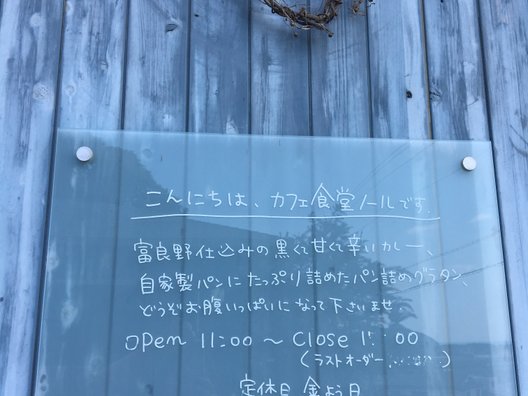 こんにちは、カフェ食堂ノールです。
富良野仕込みの黒くて甘くて辛いカレー、
自家製パンにたっぷり詰めたパン詰めグラタン、
どうぞお腹いっぱいになって下さいませ
OPen 11:00 〜 Close
(ラストオーダー
定休日 金よう日